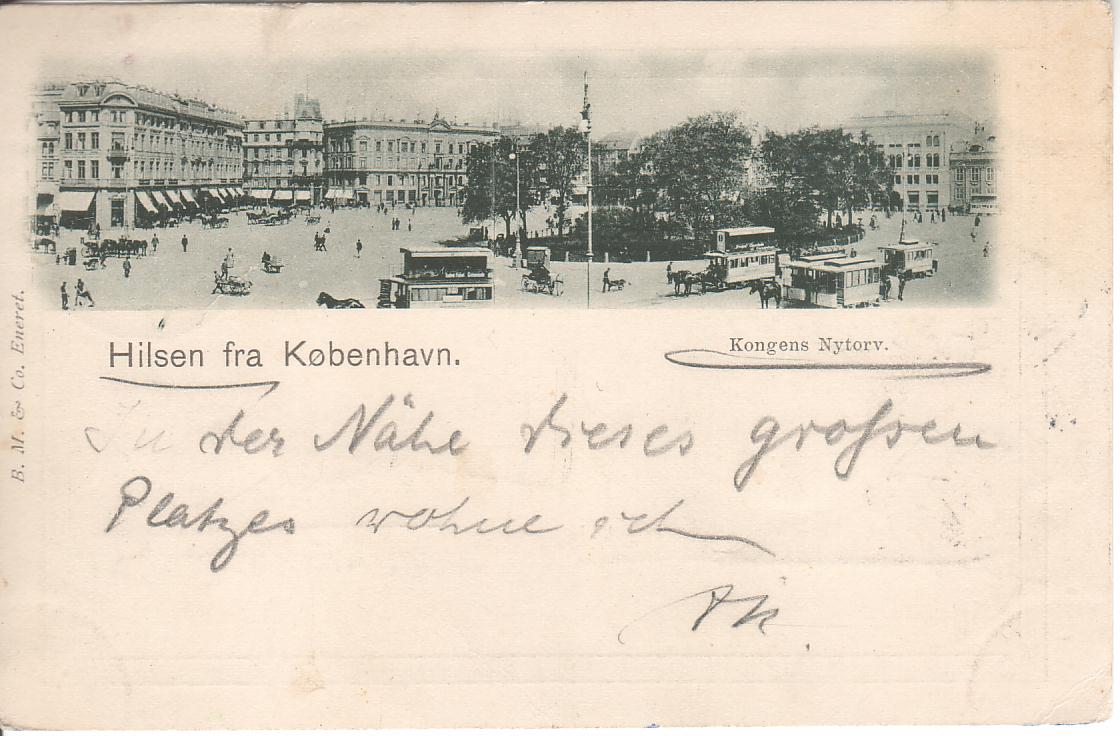 Hilsen fra København.
Kongens Nytorv.
B. M. & Co. Eneret.
In der Nähe dieses grossen
Platzes wohne ich